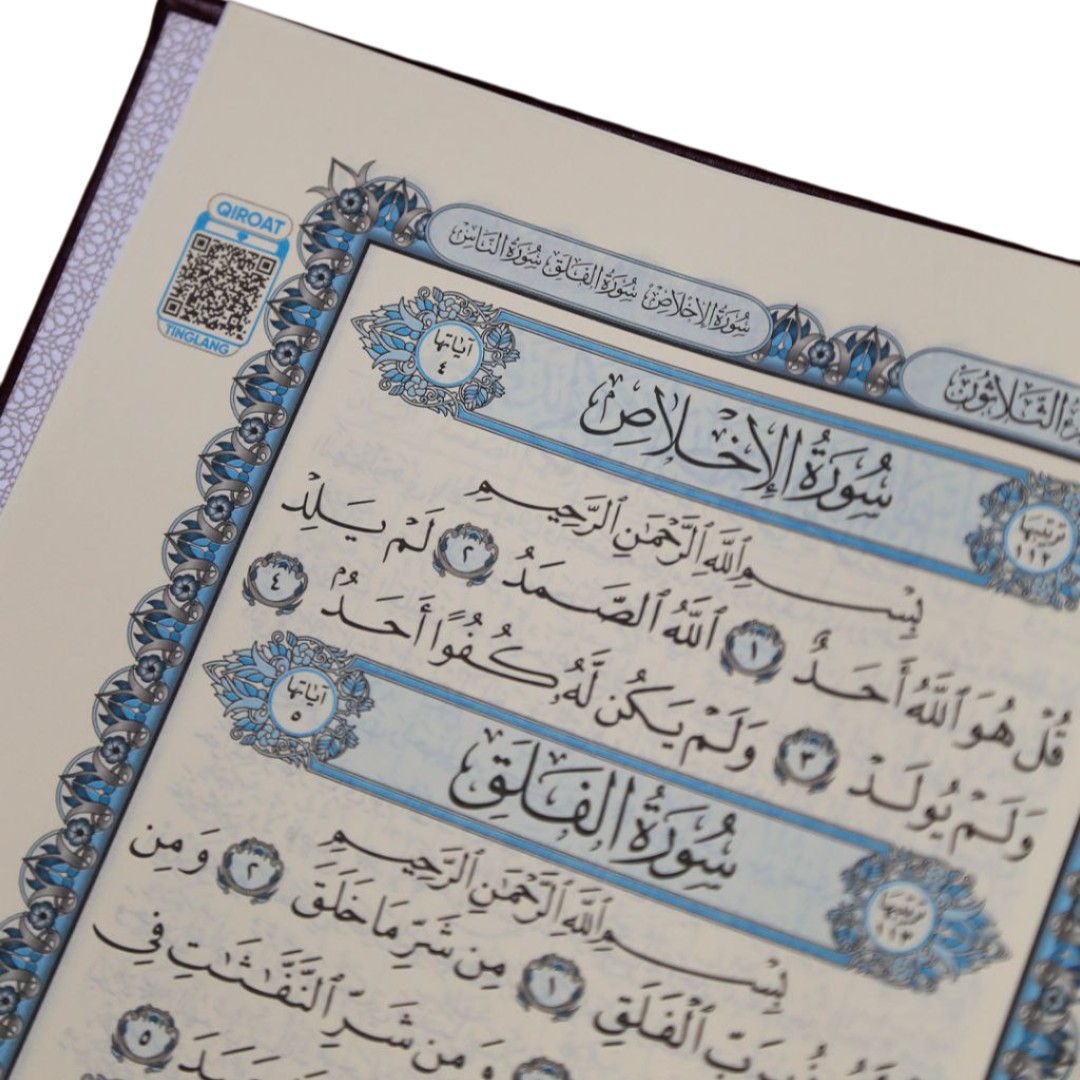 QIROAT
TINGLANG
سُورَةُ الإِخْلَاصِ سُورَةُ الفَلَقِ سُورَةُ النَّاسِ
الثَّلَاثُونَ
آياتها
٤
سُورَةُ الإِخْلَاصِ
ترتيبها
١١٢
بِسْمِ ٱللَّهِ ٱلرَّحْمَٰنِ ٱلرَّحِيمِ
قُلْ هُوَ ٱللَّهُ أَحَدٌ ١ ٱللَّهُ ٱلصَّمَدُ ٢ لَمْ يَلِدْ
وَلَمْ يُولَدْ ٣ وَلَمْ يَكُن لَّهُۥ كُفُوًا أَحَدٌۢ ٤
آياتها
٥
سُورَةُ الفَلَقِ
ترتيبها
١١٣
بِسْمِ ٱللَّهِ ٱلرَّحْمَٰنِ ٱلرَّحِيمِ
بِرَبِّ ٱلْفَلَقِ ١ مِن شَرِّ مَا خَلَقَ ٢ وَمِن
وَمِن شَرِّ ٱلنَّفَّٰثَٰتِ فِى
٥